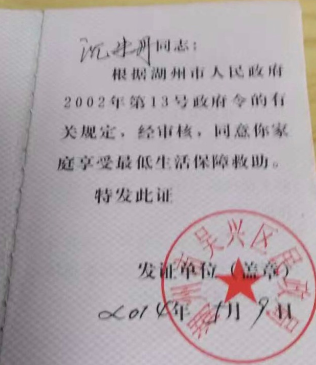 同志：
根据湖州市人民政府
2002年第13号政府令的有
关规定，经审核，同意你家
庭享受最低生活保障救助。
特发此证
湖州市吴兴区民政局
发证单位（盖章）
2014年1月9日